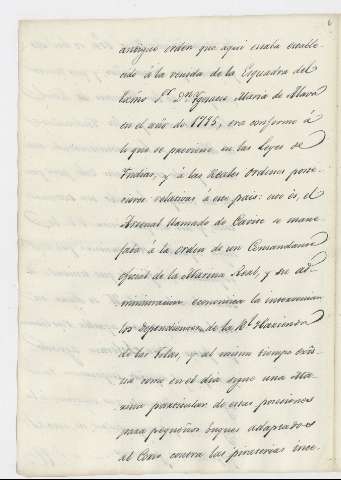 6
antiguo orden que aqui estaba estable-
cido á la venida de la Esquadra del
Exmo Sr. Dn. Ygnacio Maria de Alava
en el año de 1795, era conforme á
lo que se previene en las Leyes de
Yndias, y á las Reales ordenes pose-
riores relativas á este pais: esto és, el
Arsenal llamado de Cavite se mane-
jaba á la orden de un Comandante
oficial de la Marina Real, y su ad-
ministracion economica la intervenian
los dependientes de la Rl. Hacienda
de las Yslas, y al mismo tiempo exis-
tia como en el dia sigue una Ma-
rina particular de estas posesiones
para pequeños buques adaptados
al Corso contra las piraterias ince-